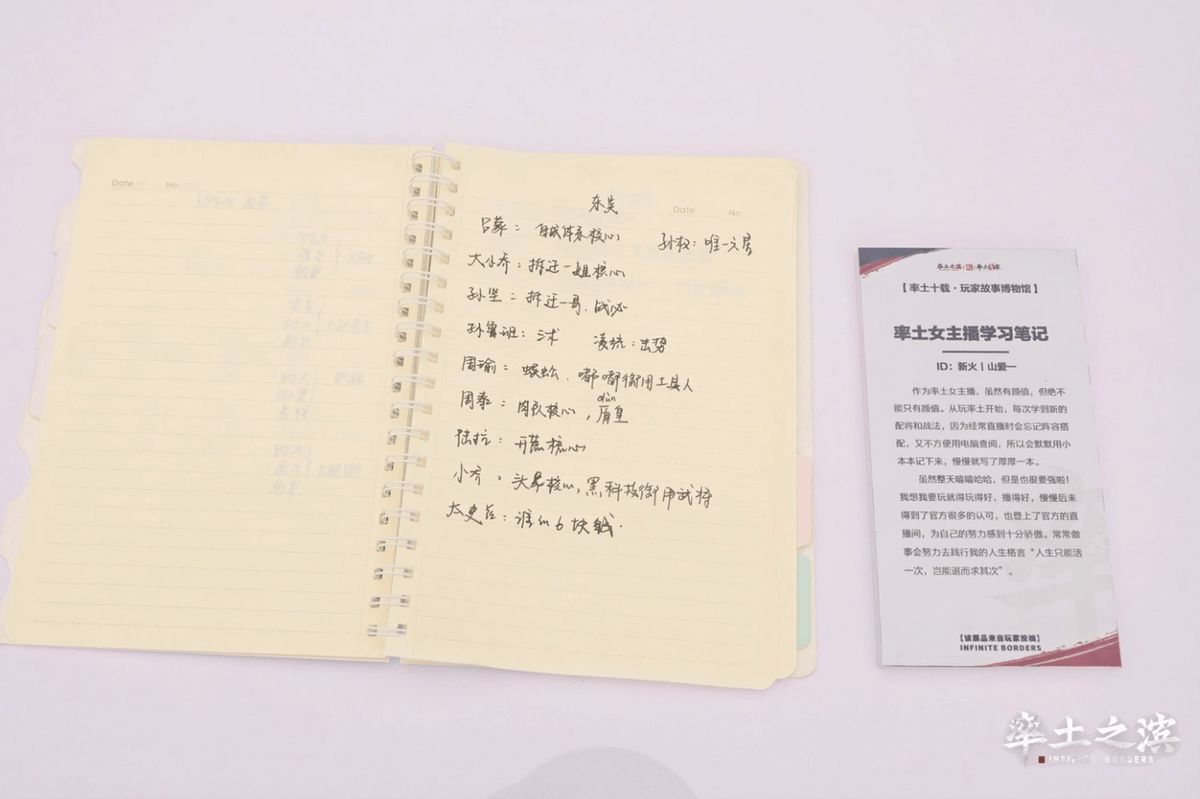 Date
No.
东吴
Date
No.
吕蒙：自成体系核心 孙权：唯一六层
大小乔：拆迁一姐核心
孙坚：拆迁一哥、战必
孙鲁班：三术 凌统：击势
周瑜：蜈蚣、嘟嘟御用工具人
周泰：肉队核心，盾皇
dùn
陆抗：开荒核心
小乔：头暴核心，黑科技御用武将
太史慈：谁似6块钱.
率土之滨
【率土十载·玩家故事博物馆】
率土女主播学习笔记
ID：新火丨山爱一
作为率土女主播，虽然有颜值，但绝不
能只有颜值。从玩率土开始，每次学到新的
配将和战法，因为经常直播时会忘记阵容搭
配，又不方便用电脑查阅，所以会默默用小
本本记下来，慢慢就写了厚厚一本。
虽然整天嘻嘻哈哈，但是也很要强啦！
我想我要玩就得玩得好，播得好，慢慢后来
得到了官方很多的认可，也登上了官方的直
播间，为自己的努力感到十分骄傲。常常做
事会努力去践行我的人生格言“人生只能活
一次，岂能退而求其次”。
【该展品来自玩家投稿】
INFINITE BORDERS
率土之滨
INFINITE BORDERS